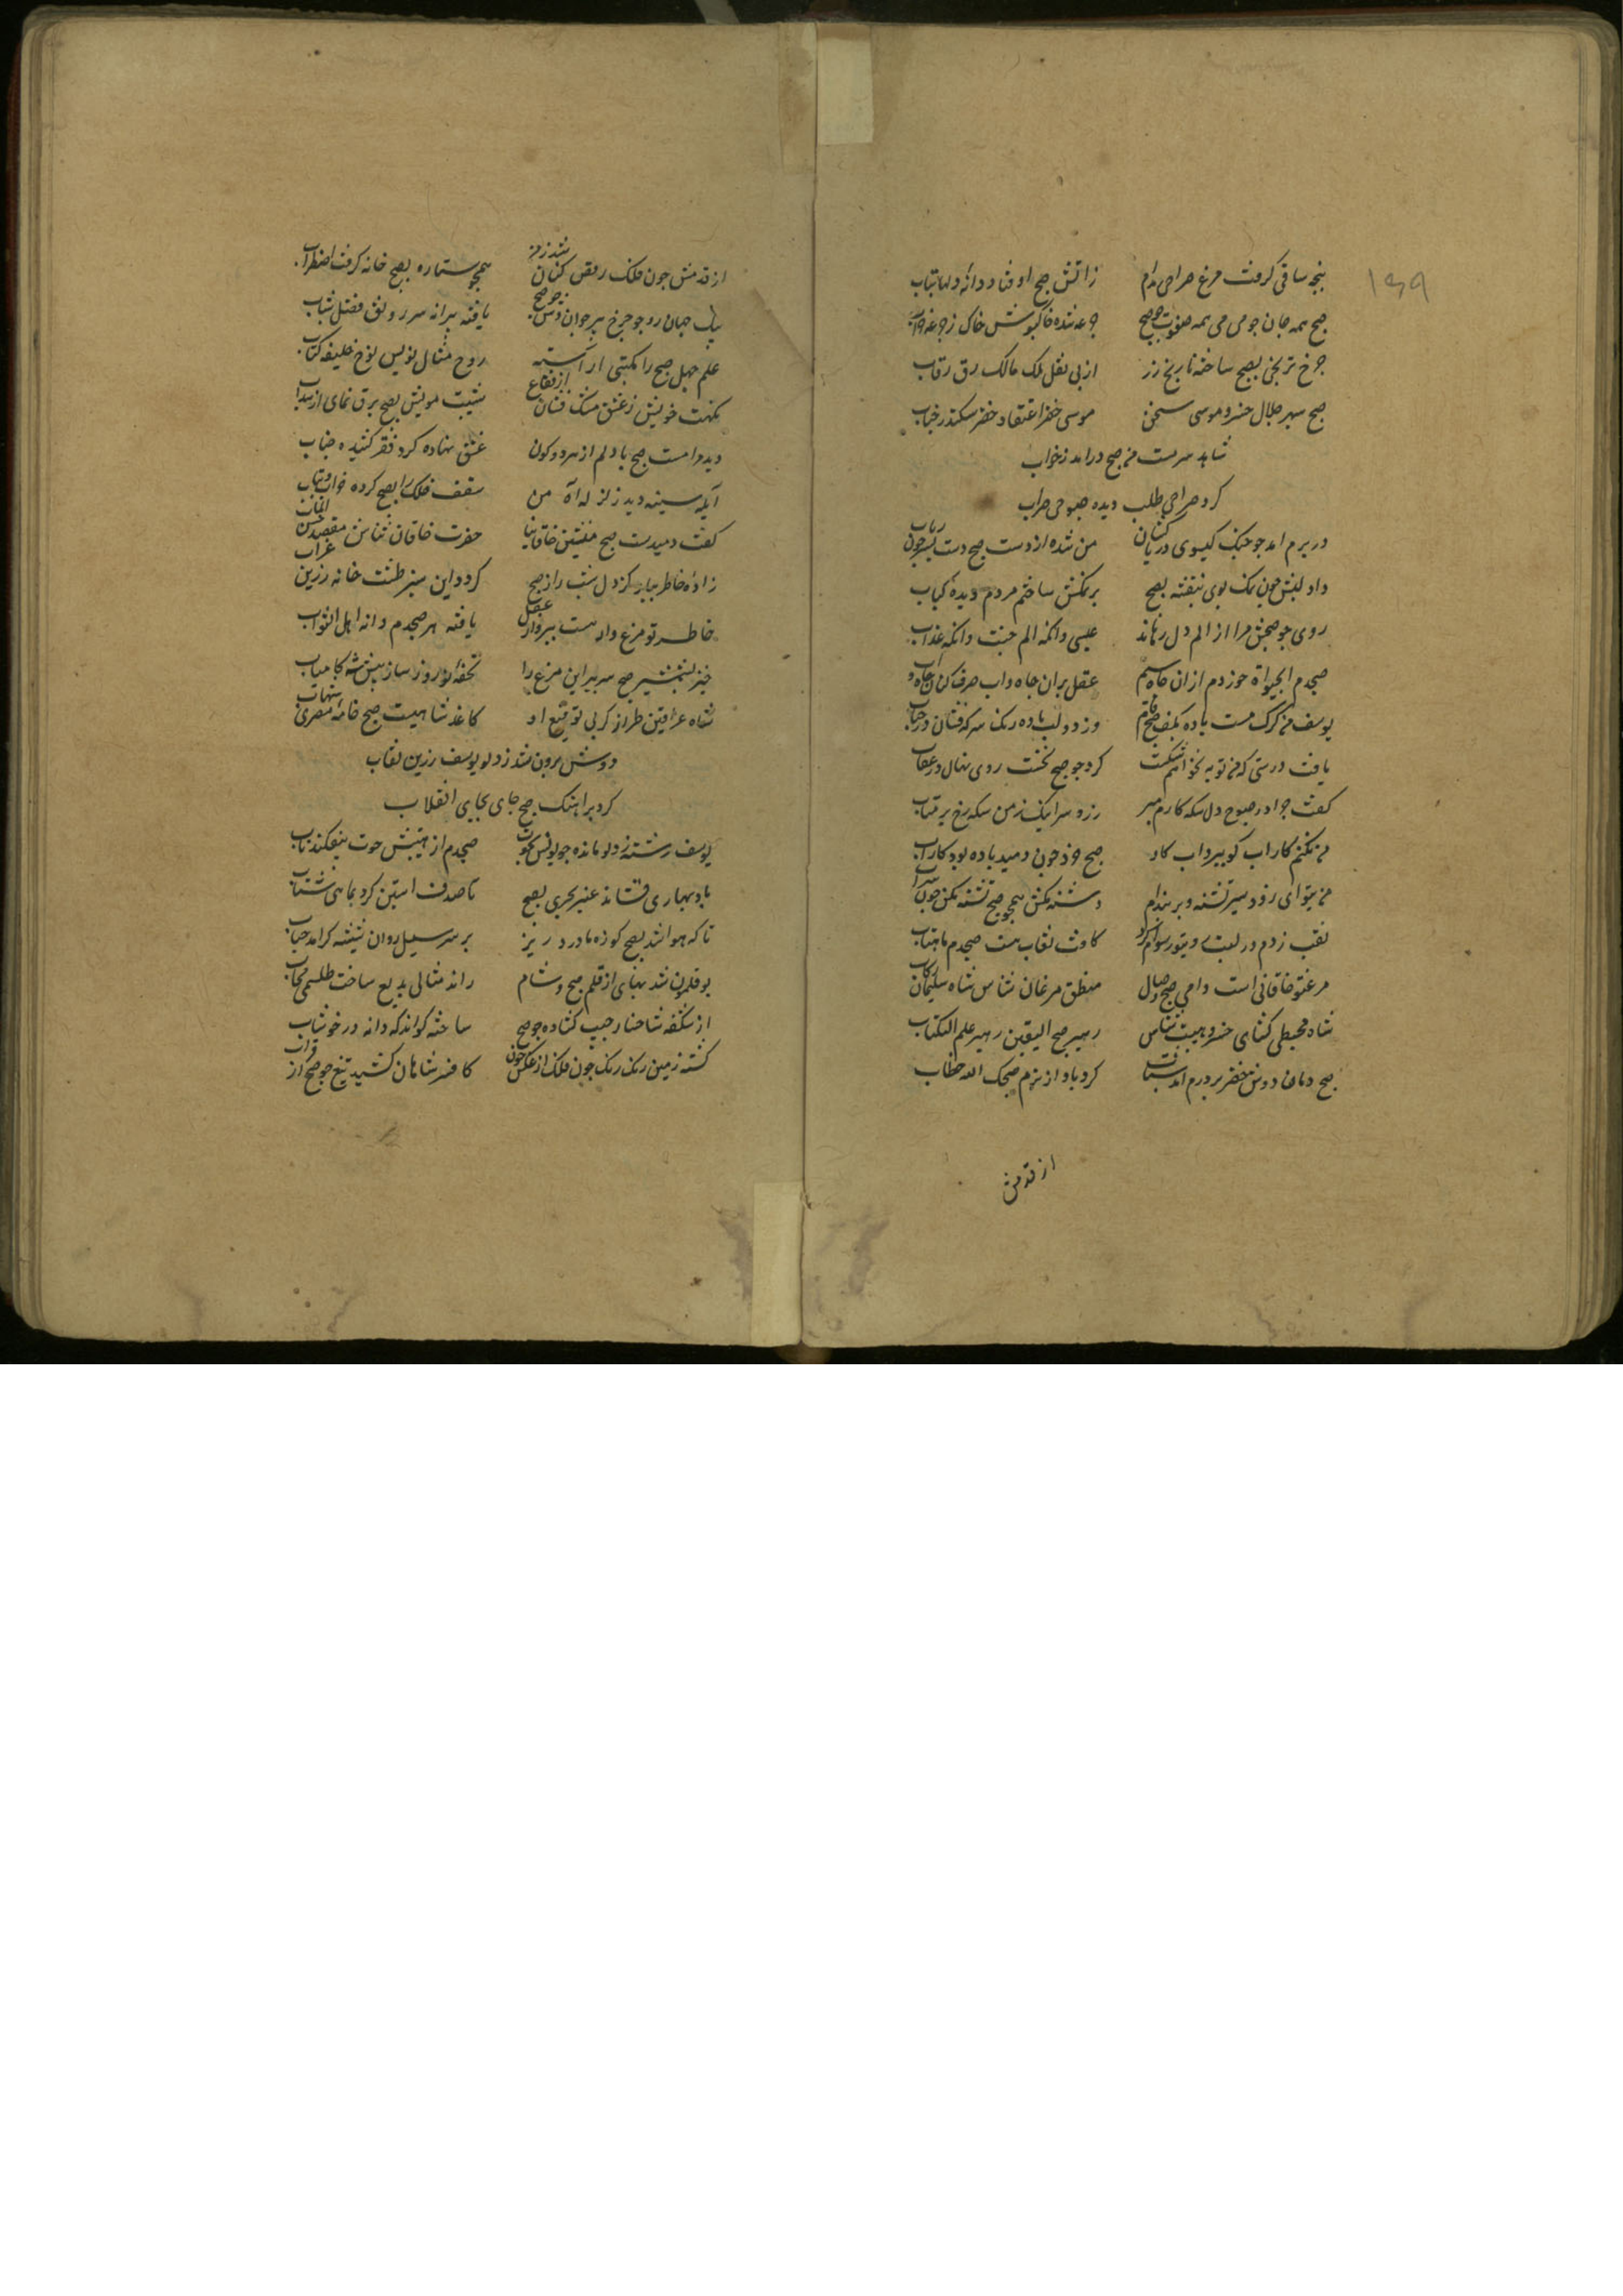 ۱۳۹
پنجه ساقی گرفت مرغ صراحی بدام زاتش صبح اوفتاد دانه دلها بتاب
صبح همه جان جو می می همه صفوت جو صبح جرعه شده خاکبوس خاک ز جرعه خراب
چرخ ترنجی بصبح ساخته نارنج زر از پی نقل ملک مالک رق رقاب
صبح سپهر جلال خسرو موسی سخن موسی خضر اعتقاد خضر سکندر جناب
شاهد سرمست من صبح درآمد ز خواب
کرد صراحی طلب دیده صبوحی صواب
در برم امد جو جنک کیسوی در پاکشان من شده از دست صبح دست بسر جون رباب
داد لبش جون نمک بوی بنفشه بصبح بر نمکش ساختم مردم دیده کباب
روی جو صبحش مرا از الم دل رهاند عیسی وانکه الم جنت وانکه عذاب
صبحدم آب حیوة خوردم ازان جاه سیم عقل بران جاه و اب صرف کنان جاه و اب
یوسف من کرک مست باده بکف صبح فام وز دو لب باده رنک سرکه فشان در عتاب
یافت درستی که من توبه نخواهم شکست کرد جو صبح نخست روی نهان در نقاب
کفت جو اد در صبوح دل سکه کارم مبر زر و سر اینک ز من سکه رخ بر متاب
من نکنم کار اب کو ببرد اب کار صبح خرد جون دمید باده بود کار اب
من بتو ای زود سیر تشنه دیرینه‌ام دشنه مکش همجو صبح تشنه مکش جون سراب
نقب زدم در لبت روی تو رسوام کرد کافت نقاب هست صبحدم ماهتاب
مرغ تو خاقانی است داعی صبح وصال منطق مرغان شناس شاه سلیمان رکاب
شاه محیطی کشای خسرو هیبت شناس رهبر صبح الیقین رهبر علم الکتاب
صبح دمان دوش خضر بر درم امد شتاب کرد باواز نرم صبحک الله خطاب
از قدمش
از قدمش جون فلک رقص کنان شد زمین همجو ستاره بصبح خانه کرفت اضطراب
پیک جهان رو جو جرخ پیر جوان وش جو صبح یافته پیرانه سر رونق فصل شباب
علم جهل صبح را مکتبی اراسته روح مثال نویس نوح خلیفه کتاب
نکهت خویش ز عشق مشک فشان از فقاع شیبت مویش بصبح برق نمای از سداب
دید مرا مست صبح با دلم از هر دو کون عشق نهاده کرو فقر کشیده جناب
ابله سینه دید زلزله اه من سقف فلک را بصبح کرده خراب و یباب
کفت دمیدست صبح منشین خاقانیا حضرت خاقان شناس مقصد حسن الماب
زاده خاطر بیار کز دل شب زاد صبح کرد در این سبز طشت خانه زرین غراب
خاطر تو مرغ وار هست بپرواز عقل یافته هر صبحدم دانه اهل الثواب
خیز بشمشیر صبح سر ببر این مرغ را تحفه نوروز ساز پیش شه کامیاب
شاه عراقین طراز کز پی توقیع او کاغذ شامیست صبح خامه مصری شهاب
دوش برون شد ز دلو یوسف زرین نقاب
کرد بر اهنک صبح جای بجای انقلاب
یوسف رسته ز دلو مانده جو یونس بحوت صبحدم از هیبتش حوت بیفکند ناب
باد بهاری فشاند عنبر بحری بصبح تا صدف استین کرد بماهی شتاب
تا که هوا شد بصبح کوزه ماورد ریز بر سر سیل روان شیشه کر امد حباب
بوقلمون شد بهار از قلم صبح و شام راند مثالی بدیع ساخت طلسمی عجاب
از شکفه شاخسار جیب کشاده جو صبح ساخته کوئی انکه دانه در خوشاب
کشته زمین رنک رنک جون فلک از عکس خون کافسر شاهان کشید تیغ جو صبح از قراب